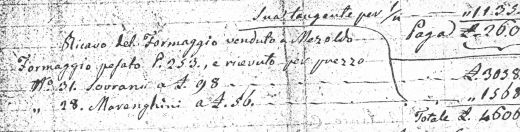 Sua tangente per 1/n " 1155
Ricavo del Formaggio venduto a Mezoldo Paga £ 260
Formaggio pesato P. 253., e ricevuto per prezzo
N° 31. Sovrani a £ 98 £ 3038
" 28. Marenghini a £ 56. " 1568
Totale £. 4606